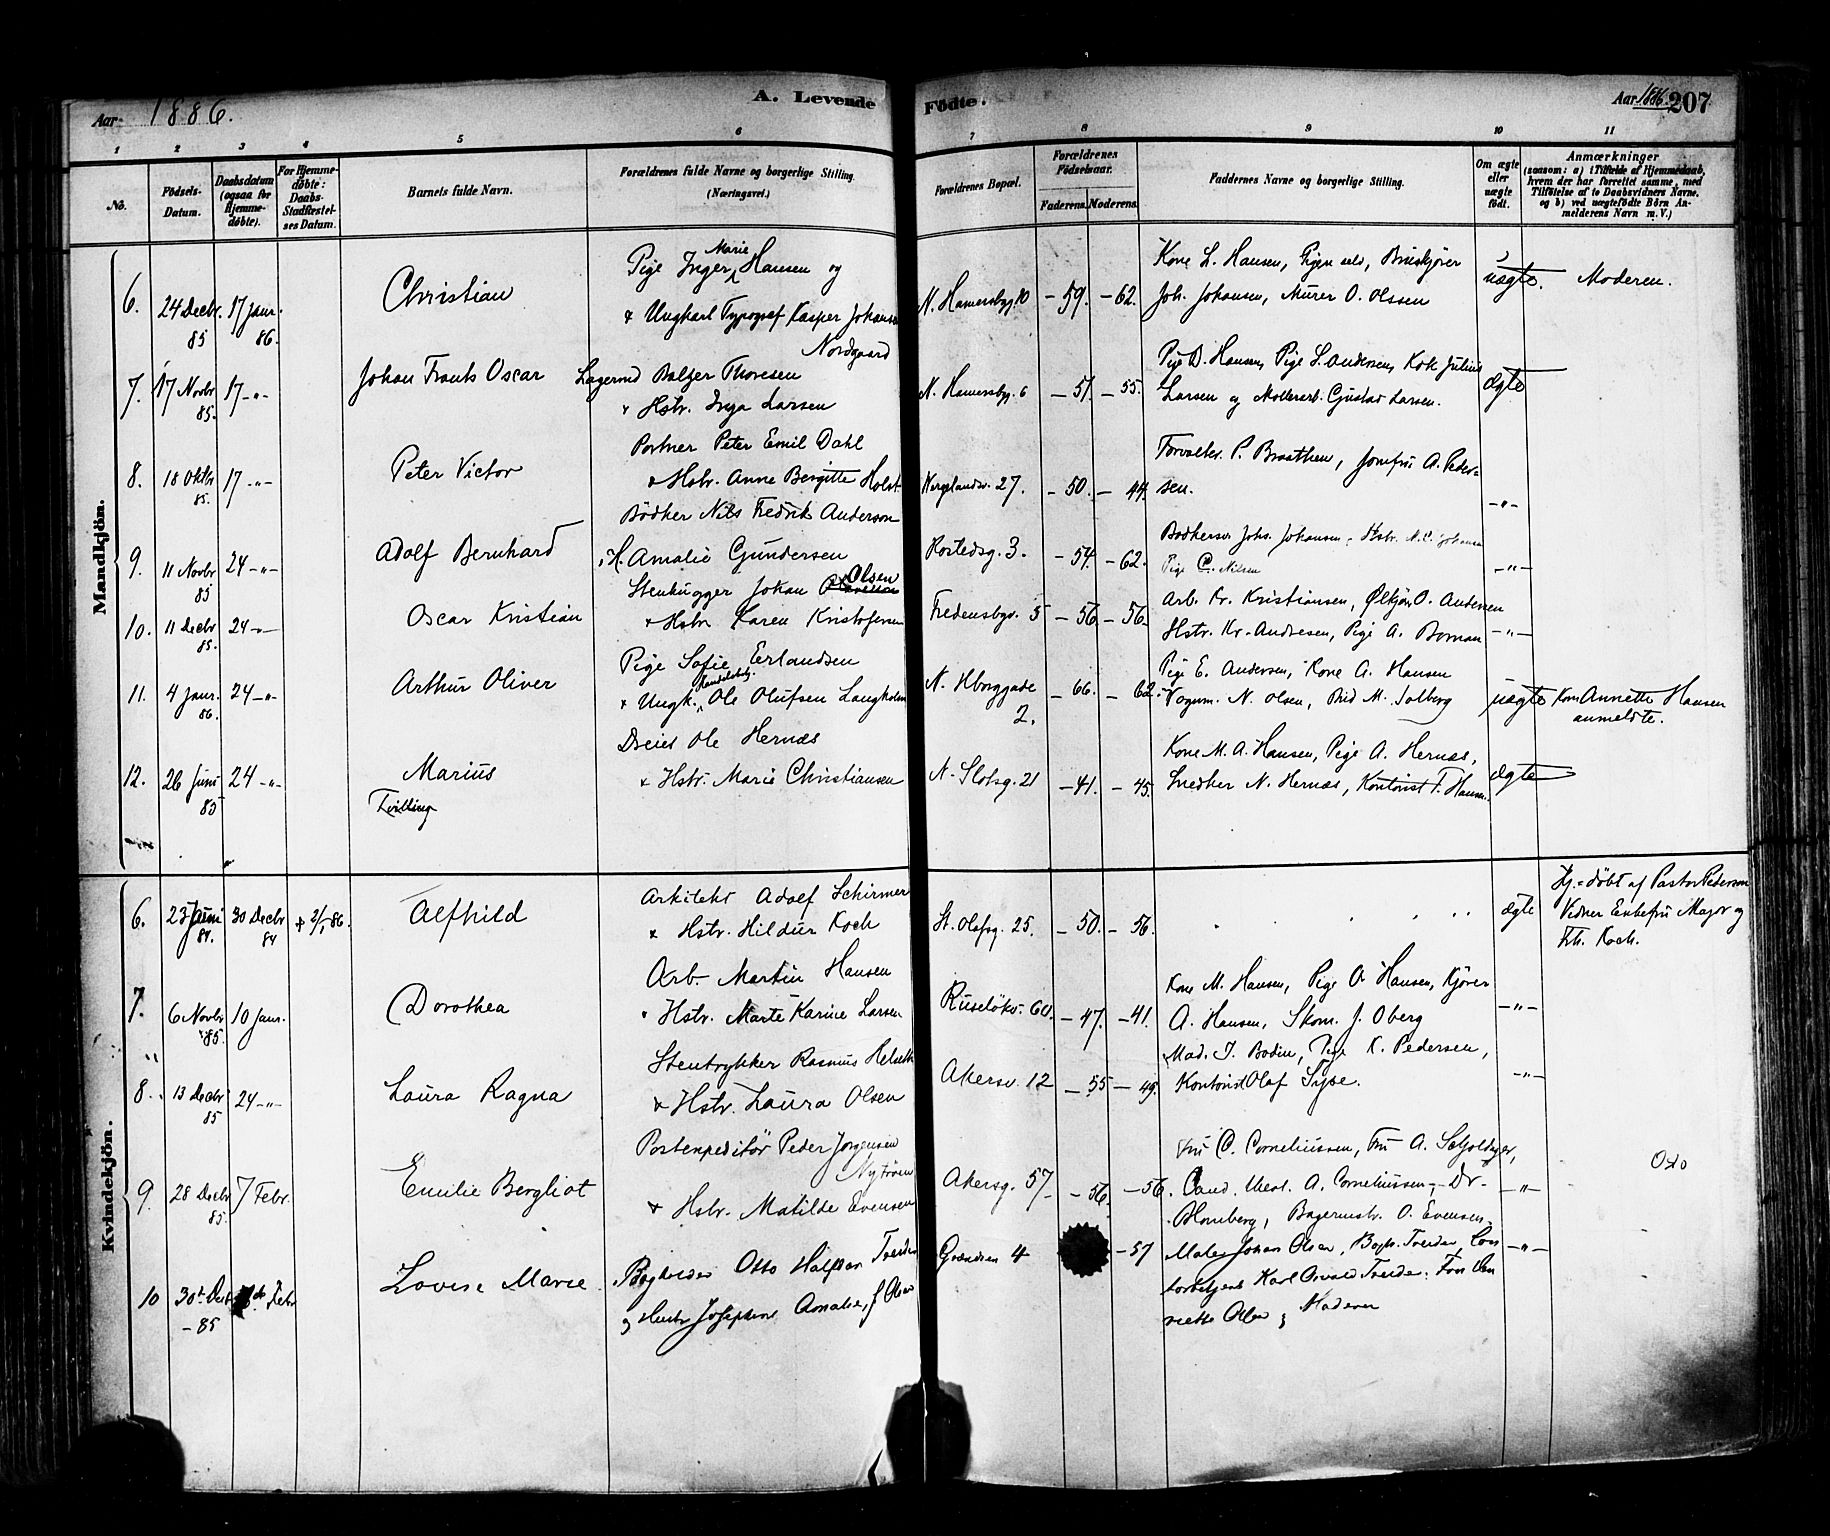 Aar 1886.
A. Levende
Fødte.
Aar 1886. 207
1 2 3 4 5 6 7 8 9 10 11
No.
Fødsels-Datum.
Daabsdatum (ogsaa for Hjemmedøbte).
For Hjemmedøbte: Daabs-Stadfæstelses Datum.
Barnets fulde Navn.
Forældrenes fulde Navne og borgerlige Stilling. (Næringsvei.)
Forældrenes Bopæl.
Forældrenes Fødselsaar.
Faderens. Moderens.
Faddernes Navne og borgerlige Stilling.
Om ægte eller uægte født.
Anmærkninger
(saasom: a) i Tilfælde af Hjemmedaab, hvem der har forrettet samme, med Tilføielse af to Daabsvidners Navne, og b) ved uægtefødte Børn Anmelderens Navn m. V.)
Mandkjøn.
6. 24 Decbr. 85 17 Janr. 86. Christian
Pige Inger Marie Hansen og
+ Ungkarl Typograf Kasper Johansen Nordgaard
N. Hamersbg. 10 - 59. - 62.
Kone L. Hansen, Pigen selv, Bruskjører
Joh. Johansen, Murer O. Olssen
uægte. Moderen.
7. 17 Novbr 85. 17 -"- Johan Frants Oscar
Lagermd Balzer Thoresen
+ Hstr. Inga Larsen
N. Hamersbg. 6 - 51. - 55.
Pige D. Hansen, Pige L. Andersen, Kok Julius
Larsen og Møllerarb. Gustav Larsen.
ægte
8. 18 Oktbr 85. 17 -"- Peter Victor
Portner Peter Emil Dahl
+ Hstr. Anne Bergitte Holst
Vergelandsv. 27. - 50. - 44.
Forvalter P. Braathen, Jomfru A. Peder-
sen.
-"-
9. 11 Novbr 85 24 -"- Adolf Bernhard
Bødker Nils Fredrik Anderson
+ H. Amalie Gundersen
Rostedsg. 3. - 54. - 62.
Bødkersv. Johs. Johansen, Hstr. N. C. Johansen
Pige C. Nilsen
-"-
10. 11 Decbr 85. 24 -"- Oscar Kristian
Stenhugger Johan Olsen
+ Hstr. Karen Kristofersen
Fredensbgv. 5 - 56. - 56.
Arb. Kr. Kristiansen, Ølkjør. O. Andersen
Hstr. Kr. Andresen, Pige A. Boman
-"-
11. 4 Janr. 86. 24 -"- Arthur Oliver
Pige Sofie Erlandsen
+ Ungk. Handelsbetj. Ole Olufsen Langholm
N. Hborggade 2. - 66. - 62.
Pige E. Andersen, Kone A. Hansen
Vognm. N. Olsen, Bud M. Solberg
uægte Kone Annette Hansen
anmeldte.
12. 26 Juni 85 24 -"- Marius
Tvilling
Dreier Ole Hernæs
+ Hstr. Marie Christiansen
N. Slotsg. 21 - 41. - 45.
Kone M. A. Hansen, Pige A. Hernæs,
Snedker N. Hernæs, Kontorist T. Hansen.
ægte
Kvindekjøn.
6. 23 Juni 84. 30 Decbr 84 + 2/1 86. Alfhild
Arkitekt Adolf Schirmer
+ Hstr. Hildur Koch
St. Olafsg. 25. - 50. - 56.
ægte
Hj.=døbt af Pastor Pederson
Vidner Enkefru Major og
Frk. Koch.
7. 6 Novbr 85. 10 Janr. Dorothea
Arb. Martin Hansen
+ Hstr. Marte Karine Larsen
Ruseløkv. 60. - 47. - 41.
Kone M. Hansen, Pige O. Hansen, Kjører
A. Hansen, Skom. J. Oberg
-"-
8. 13 Decbr 85 24 -"- Laura Ragna
Stentrykker Rasmus Helseth
+ Hstr. Laura Olsen
Akersv. 12 - 55 - 49.
Mad. J. Bodin, Pige K. Pedersen,
Kontorist Olaf Syse.
-"-
9. 28 Decbr 85. 7 Febr. Emilie Bergliot
Postexpeditør Peder Jørgensen Nytrøen
+ Hstr. Matilde Evensen
Akersg. 57. - 56. - 56.
Fru C. Corneliussen, Fru A. Scholdager,
Cand. theol. A. Corneliussen, Dr.
Homberg, Bagermstr. O. Evensen.
-"-
10 30te Decb - 85 Febr Lovise Marie
Bogholder Otto Halfdan Treider
og Hustr. Josephine Amalie, f. Olsen
Grændsen 4 - 57
Maler Johan Olsen, Bogh. Treider, Con
torbetjent Karl Osvald Treider, Frøk. Hen
riette Olsen og Moderen
-"-